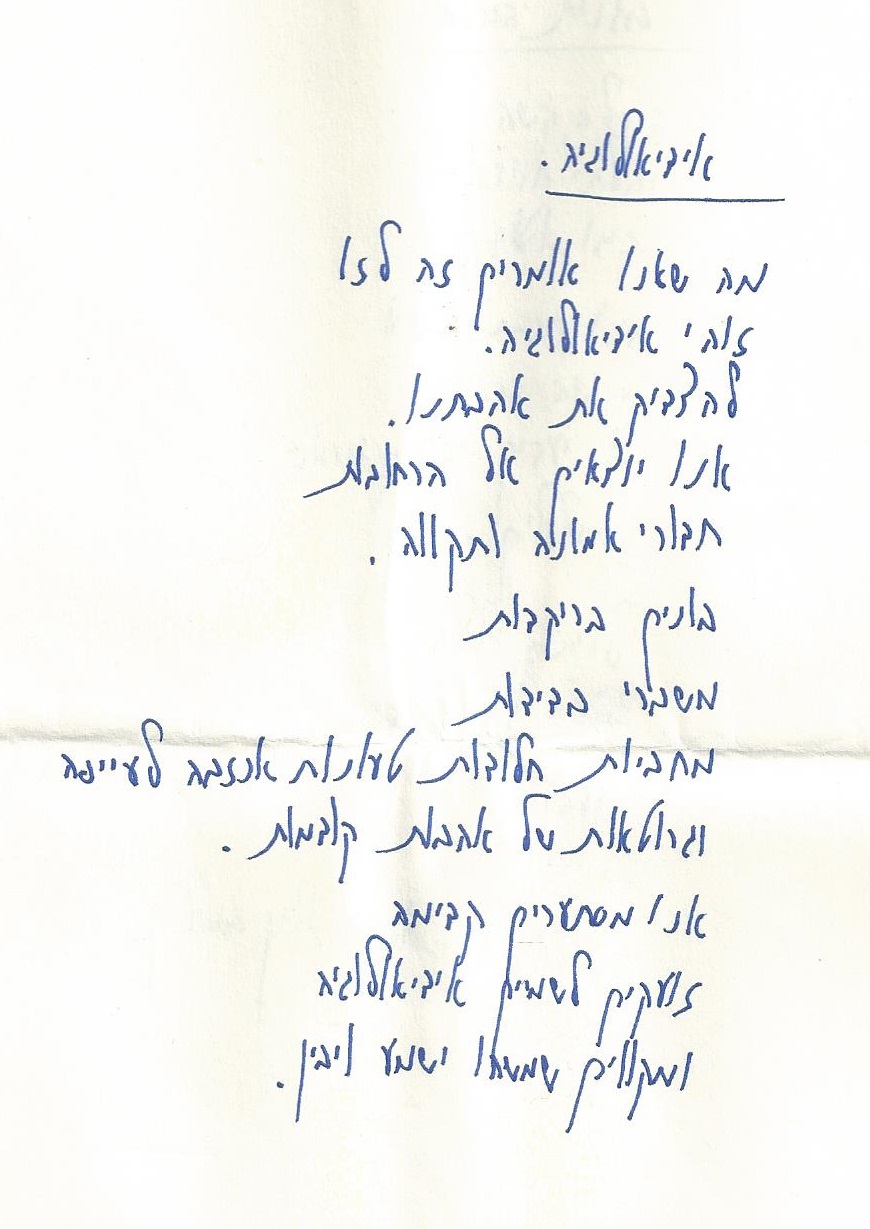 אידיאולוגיה.
מה שאנו אומרים זה לזו
זוהי אידיאולוגיה.
להצדיק את אהבתנו.
אנו יוצאים אל הרחובות
חבורי אמונה ותקווה.
בונים בריקדות
משברי בדידות
מחביות חלודות טעונות אכזבה לעייפה
וגרוטאות של אהבות קודמות.
אנו מסתערים קדימה
זועקים לשמים אידיאולוגיה
ומקווים שמשהו ישמע ויבין.